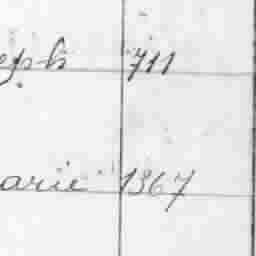 eph 711
arie 1367